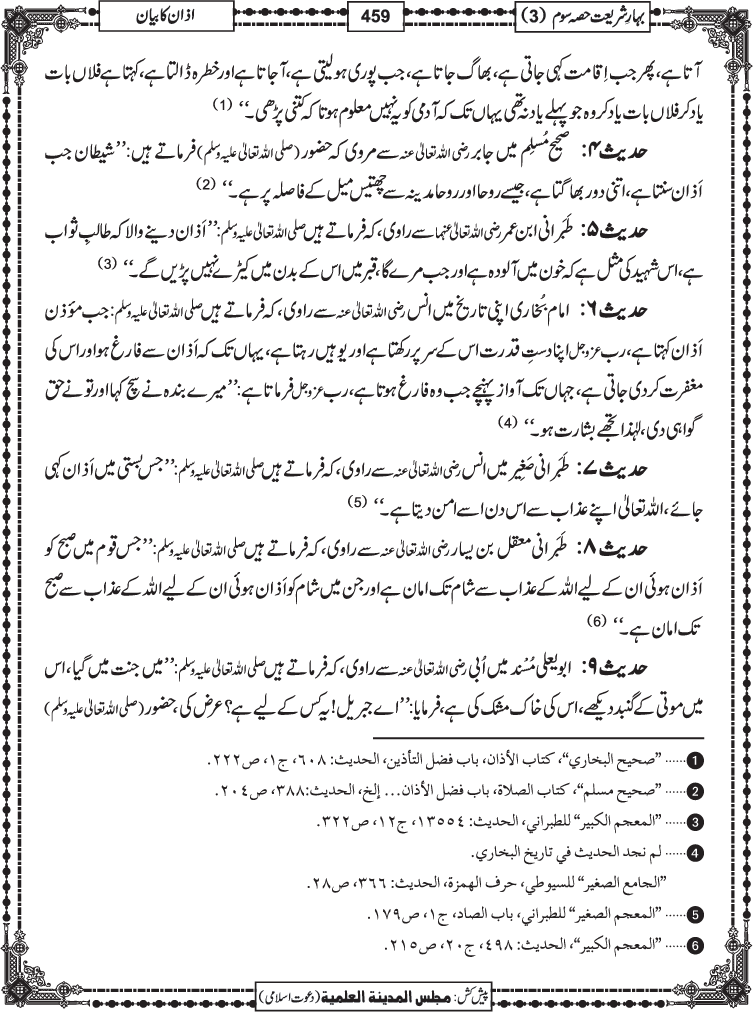 بہار شریعت حصہ سوم (3)
459
اذان کا بیان
آتا ہے، پھر جب اِقامت کہی جاتی ہے، بھاگ جاتا ہے، جب پوری ہو لیتی ہے، آ جاتا ہے اور خطرہ ڈالتا ہے، کہتا ہے فلاں بات
یاد کر فلاں بات یاد کر وہ جو پہلے یاد نہ تھی یہاں تک کہ آدمی کو یہ نہیں معلوم ہوتا کہ کتنی پڑھی۔‘‘ (1)
حدیث ۴: صحیح مُسلِم میں جابر رضی اللہ تعالیٰ عنہ سے مروی کہ حضور (صلی اللہ تعالیٰ علیہ وسلم) فرماتے ہیں: ’’شیطان جب
اَذان سنتا ہے، اتنی دور بھاگتا ہے، جیسے روحا اور روحا مدینہ سے چھتیس میل کے فاصلہ پر ہے۔‘‘ (2)
حدیث ۵: طَبَرانی ابن عمر رضی اللہ تعالیٰ عنہما سے راوی، کہ فرماتے ہیں صلی اللہ تعالیٰ علیہ وسلم: ’’اَذان دینے والا کہ طالبِ ثواب
ہے، اس شہید کی مثل ہے کہ خون میں آلودہ ہے اور جب مرے گا، قبر میں اس کے بدن میں کیڑے نہیں پڑیں گے۔‘‘ (3)
حدیث ۶: امام بُخاری اپنی تاریخ میں انس رضی اللہ تعالیٰ عنہ سے راوی، کہ فرماتے ہیں صلی اللہ تعالیٰ علیہ وسلم: جب مؤذن
اَذان کہتا ہے، رب عزوجل اپنا دستِ قدرت اس کے سر پر رکھتا ہے اور یوہیں رہتا ہے، یہاں تک کہ اَذان سے فارغ ہو اور اس کی
مغفرت کر دی جاتی ہے، جہاں تک آواز پہنچے جب وہ فارغ ہوتا ہے، رب عزوجل فرماتا ہے: ’’میرے بندہ نے سچ کہا اور تو نے حق
گواہی دی، لہٰذا تجھے بشارت ہو۔‘‘ (4)
حدیث ۷: طَبَرانی صَغِیر میں انس رضی اللہ تعالیٰ عنہ سے راوی، کہ فرماتے ہیں صلی اللہ تعالیٰ علیہ وسلم: ’’جس بستی میں اَذان کہی
جائے، اللہ تعالیٰ اپنے عذاب سے اس دن اسے امن دیتا ہے۔‘‘ (5)
حدیث ۸: طَبَرانی معقل بن یسار رضی اللہ تعالیٰ عنہ سے راوی، کہ فرماتے ہیں صلی اللہ تعالیٰ علیہ وسلم: ’’جس قوم میں صبح کو
اَذان ہوئی ان کے لیے اللہ کے عذاب سے شام تک امان ہے اور جن میں شام کو اَذان ہوئی ان کے لیے اللہ کے عذاب سے صبح
تک امان ہے۔‘‘ (6)
حدیث ۹: ابو یعلی مُسْنَد میں اُبی رضی اللہ تعالیٰ عنہ سے راوی، کہ فرماتے ہیں صلی اللہ تعالیٰ علیہ وسلم: ’’میں جنت میں گیا، اس
میں موتی کے گنبد دیکھے، اس کی خاک مشک کی ہے، فرمایا: ’’اے جبریل! یہ کس کے لیے ہے؟ عرض کی، حضور (صلی اللہ تعالیٰ علیہ وسلم)
1 ...... ”صحيح البخاري“، كتاب الأذان، باب فضل التأذين، الحديث: ٦٠٨، ج١، ص٢٢٢.
2 ...... ”صحيح مسلم“، كتاب الصلاة، باب فضل الأذان... إلخ، الحديث:٣٨٨، ص٢٠٤.
3 ...... ”المعجم الكبير“ للطبراني، الحديث: ١٣٥٥٤، ج١٢، ص٣٢٢.
4 ...... لم نجد الحديث في تاريخ البخاري.
”الجامع الصغير“ للسيوطي، حرف الهمزة، الحديث: ٣٦٦، ص٢٨.
5 ...... ”المعجم الصغير“ للطبراني، باب الصاد، ج١، ص١٧٩.
6 ...... ”المعجم الكبير“، الحديث: ٤٩٨، ج٢٠، ص٢١٥.
پیش کش: مجلس المدينة العلمية (دعوت اسلامی)